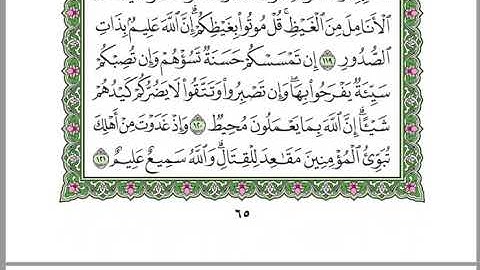 ٱلۡأَنَامِلَ مِنَ ٱلۡغَيۡظِۚ قُلۡ مُوتُواْ بِغَيۡظِكُمۡۗ إِنَّ ٱللَّهَ عَلِيمُۢ بِذَاتِ
ٱلصُّدُورِ ١١٩ إِن تَمۡسَسۡكُمۡ حَسَنَةٞ تَسُؤۡهُمۡ وَإِن تُصِبۡكُمۡ
سَيِّئَةٞ يَفۡرَحُواْ بِهَاۖ وَإِن تَصۡبِرُواْ وَتَتَّقُواْ لَا يَضُرُّكُمۡ كَيۡدُهُمۡ
شَيۡـًٔاۗ إِنَّ ٱللَّهَ بِمَا يَعۡمَلُونَ مُحِيطٞ ١٢٠ وَإِذۡ غَدَوۡتَ مِنۡ أَهۡلِكَ
تُبَوِّئُ ٱلۡمُؤۡمِنِينَ مَقَٰعِدَ لِلۡقِتَالِۗ وَٱللَّهُ سَمِيعٌ عَلِيمٌ ١٢١
٦٥